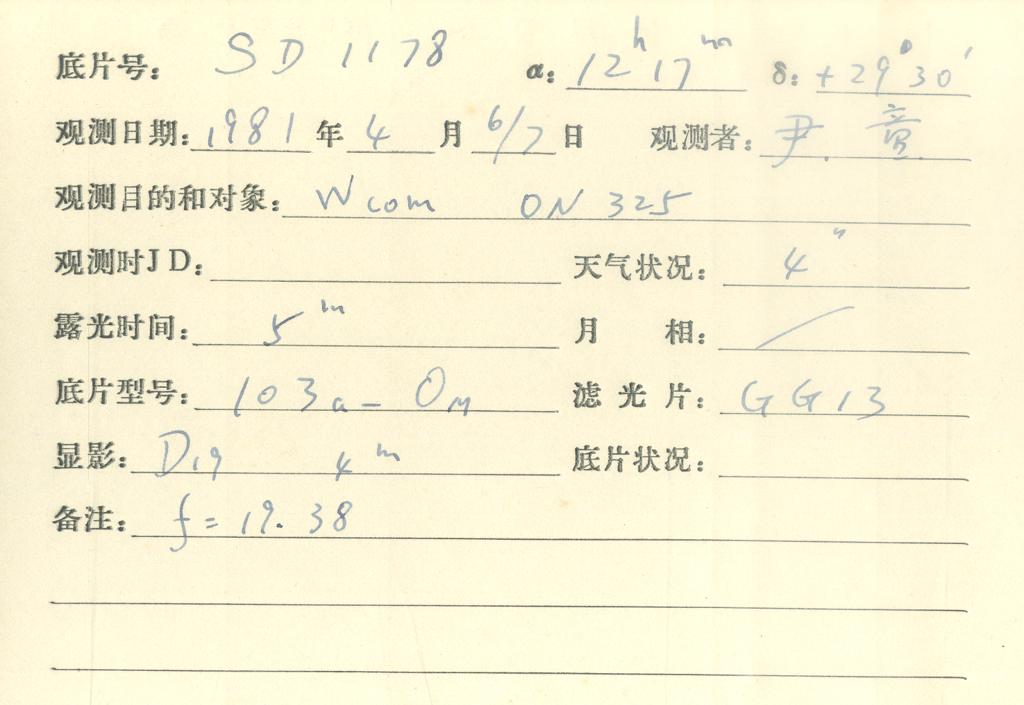 底片号: SD 1178 α: 12h 17m δ: +29° 30′
观测日期: 1981 年 4 月 6/7 日 观测者: 尹.
观测目的和对象: W com ON 325
观测时JD: 天气状况: 4"
露光时间: 5m 月 相: /
底片型号: 103a-O 滤光片: GG13
显影: D19 4m 底片状况:
备注: f = 19.38